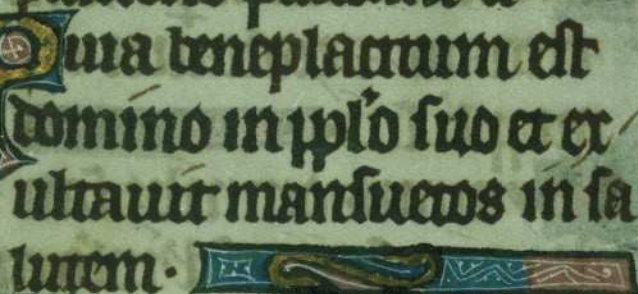 Quia beneplacitum est
domino in pplo suo et ex
ultauit mansuetos in sa
lutem.